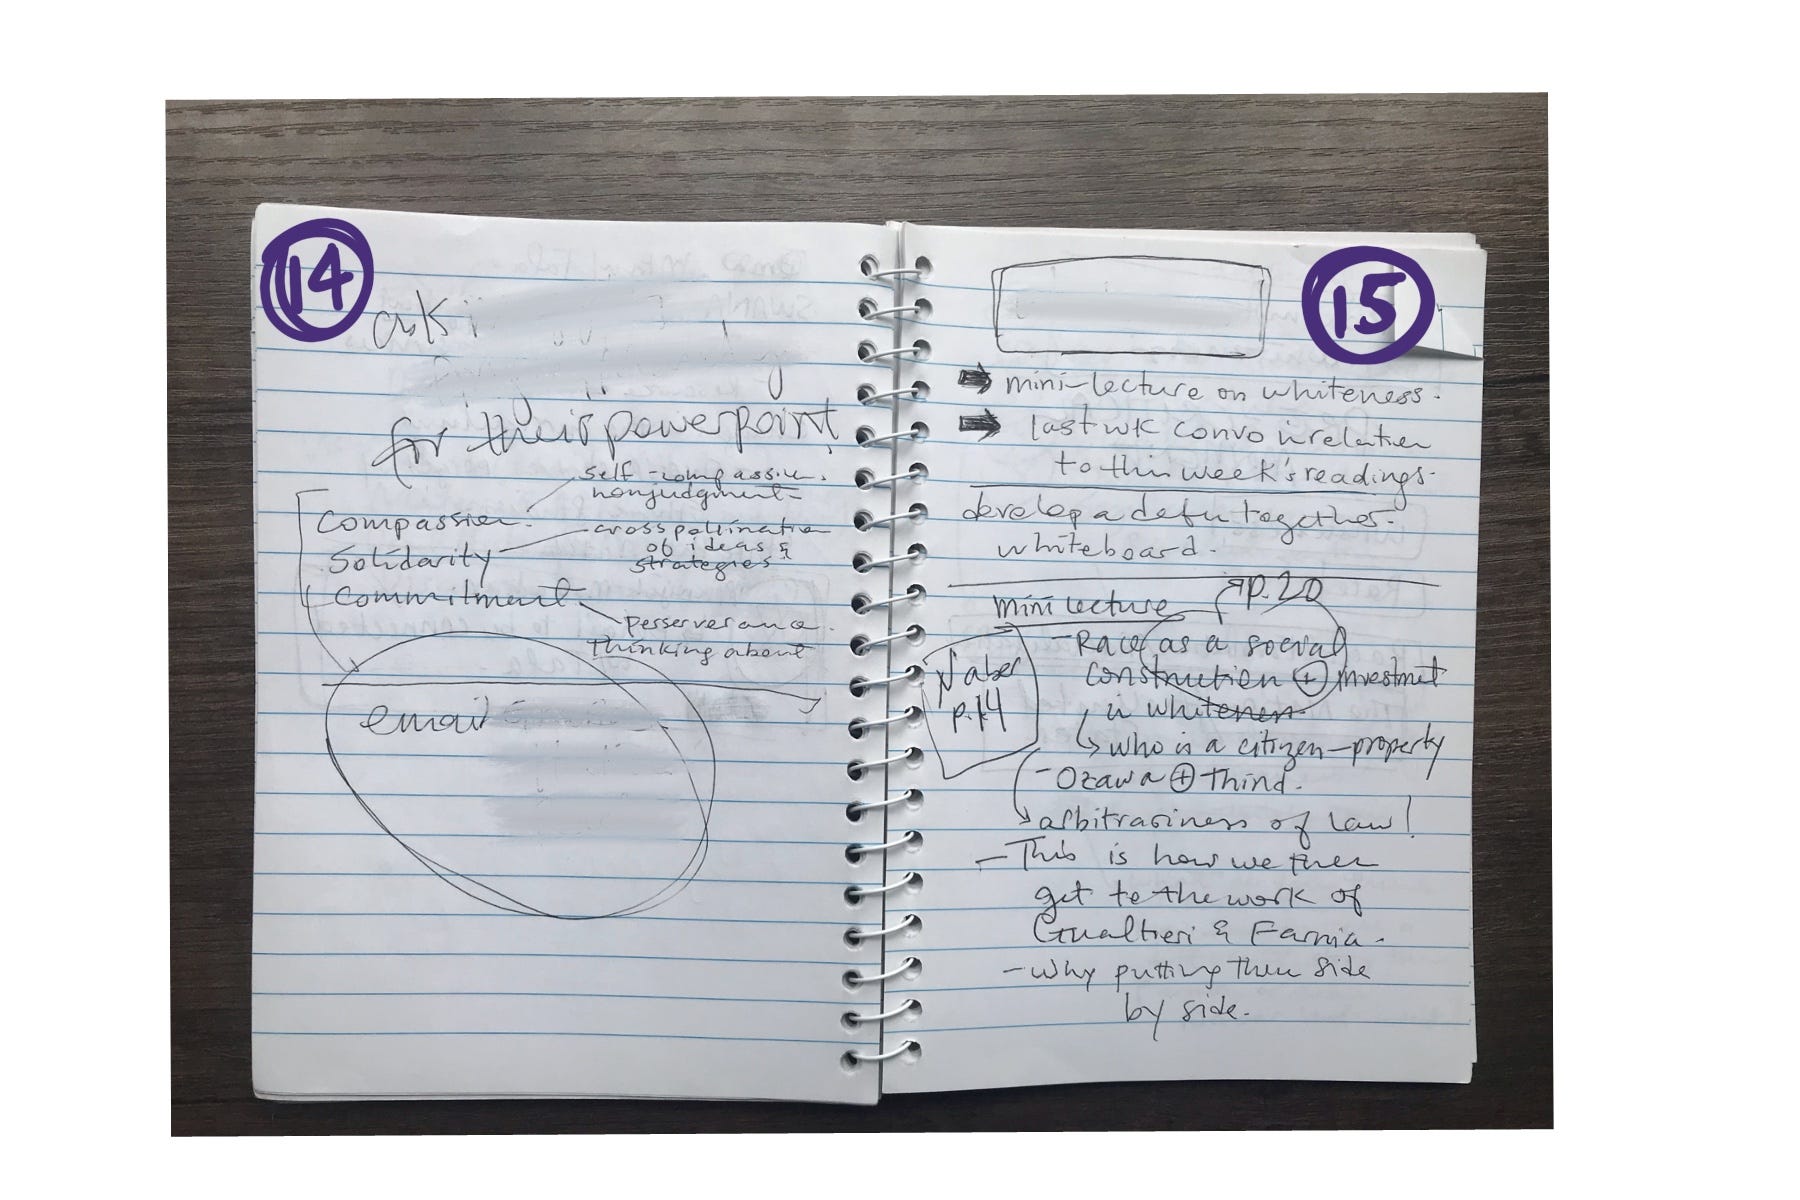 14
ask
for their powerpoint
self-compassion.
nonjudgment
Compassion.
cross pollination
of ideas &
strategies
Solidarity
Commitment
perserverance.
Thinking about
email
15
mini-lecture on whiteness.
last wk convo in relation
to this week's readings.
develop a defn together.
whiteboard.
p. 20
mini lecture
- Race as a social
construction + investment
in whiteness.
Naber
p.14
who is a citizen - property
- Ozawa + Thind.
arbitrariness of law!
- This is how we then
get to the work of
Gualtieri & Farnia.
- why putting them side
by side.